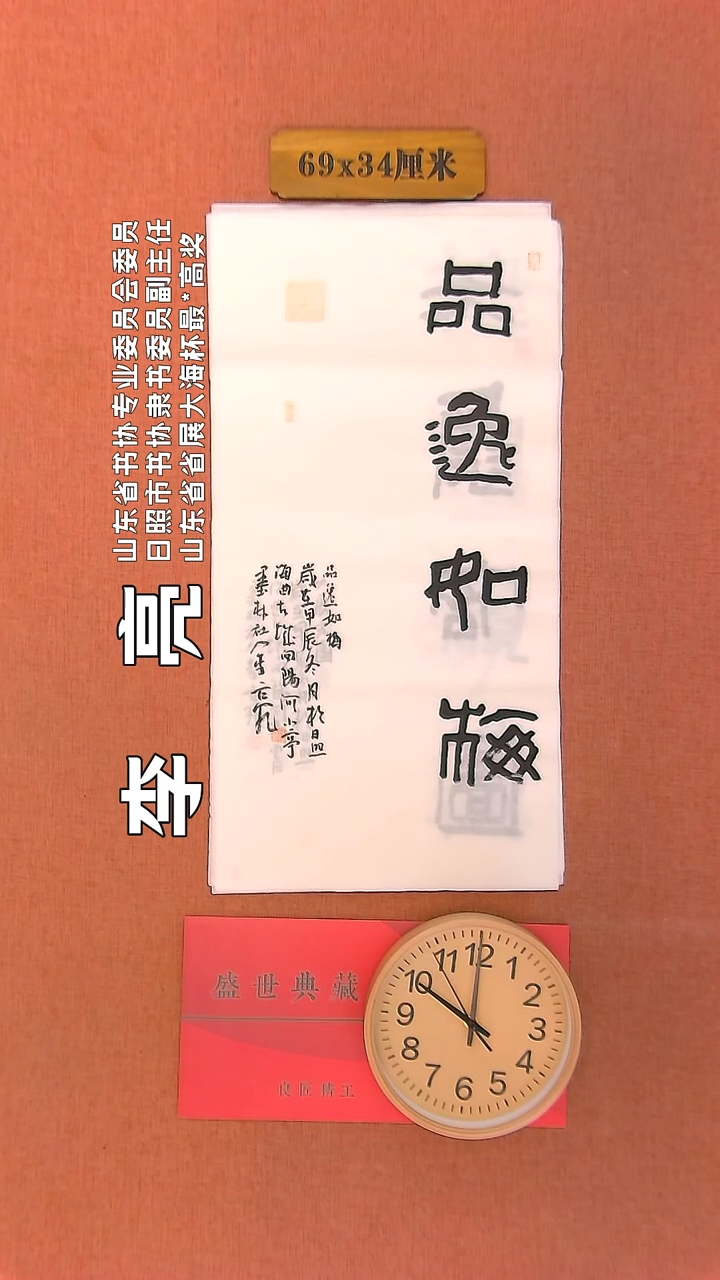 69x34厘米
品逸如梅
品逸如梅
歲在甲辰冬月於日照
海曲古城向陽河小亭
墨朴社人李亮
山东省书协专业委员会委员
日照市书协隶书委员副主任
山东省省展大海杯最*高奖
李 亮
盛世典藏
良匠精工
12
1
2
3
4
5
6
7
8
9
10
11